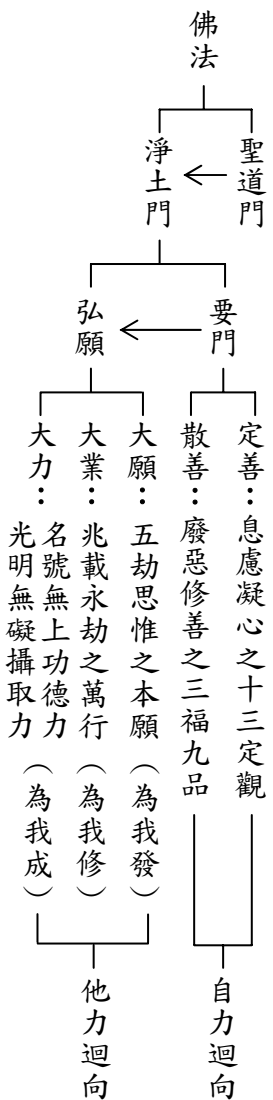 佛法
聖道門
淨土門
要門
弘願
定善：息慮凝心之十三定觀
散善：廢惡修善之三福九品
大願：五劫思惟之本願（為我發）
大業：兆載永劫之萬行（為我修）
大力：名號無上功德力
光明無礙攝取力（為我成）
自力迴向
他力迴向